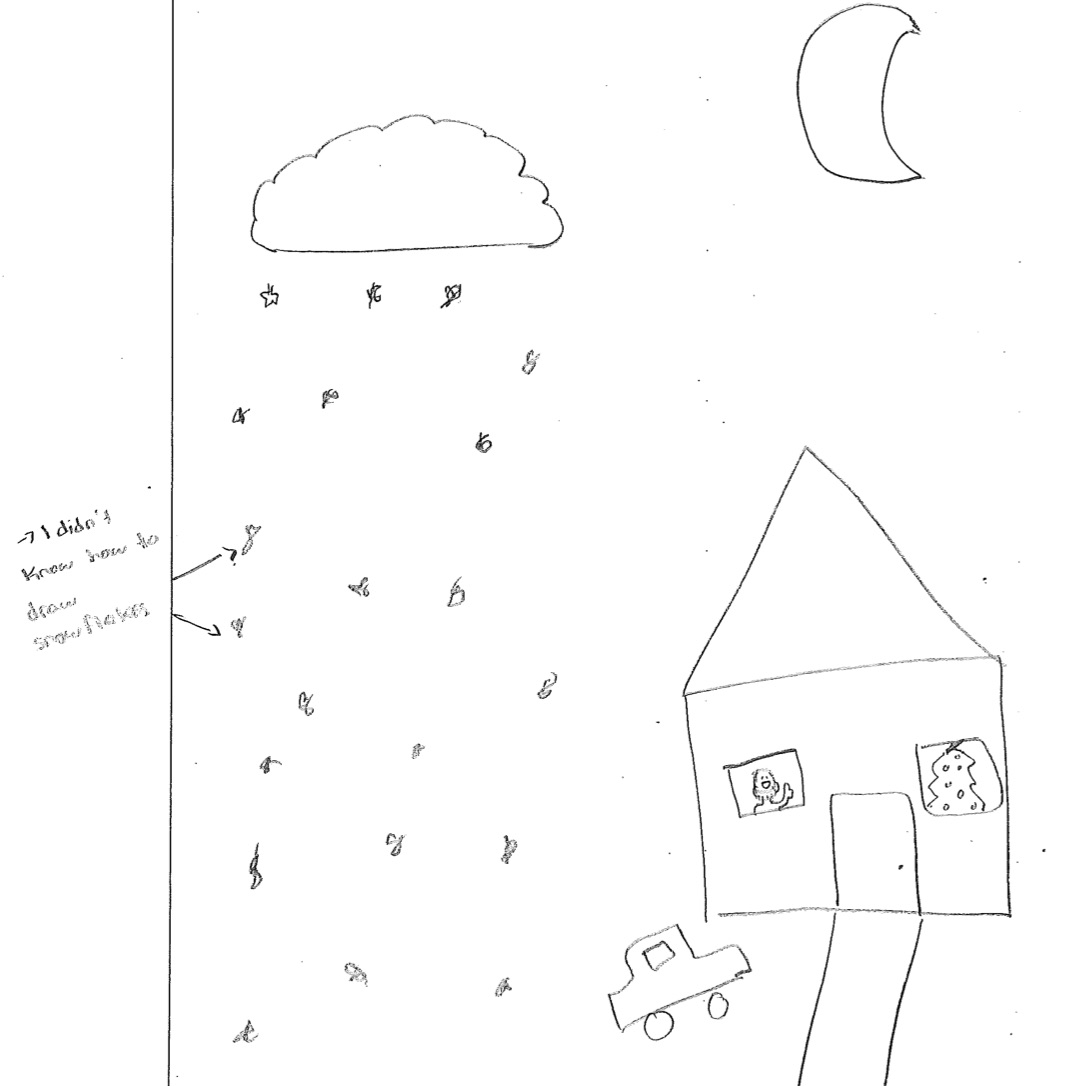 → I didn't
know how to
draw
snowflakes